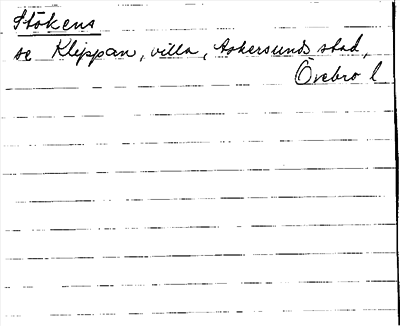 Stökens
se Klippan, villa, Askersunds stad,
Örebro l